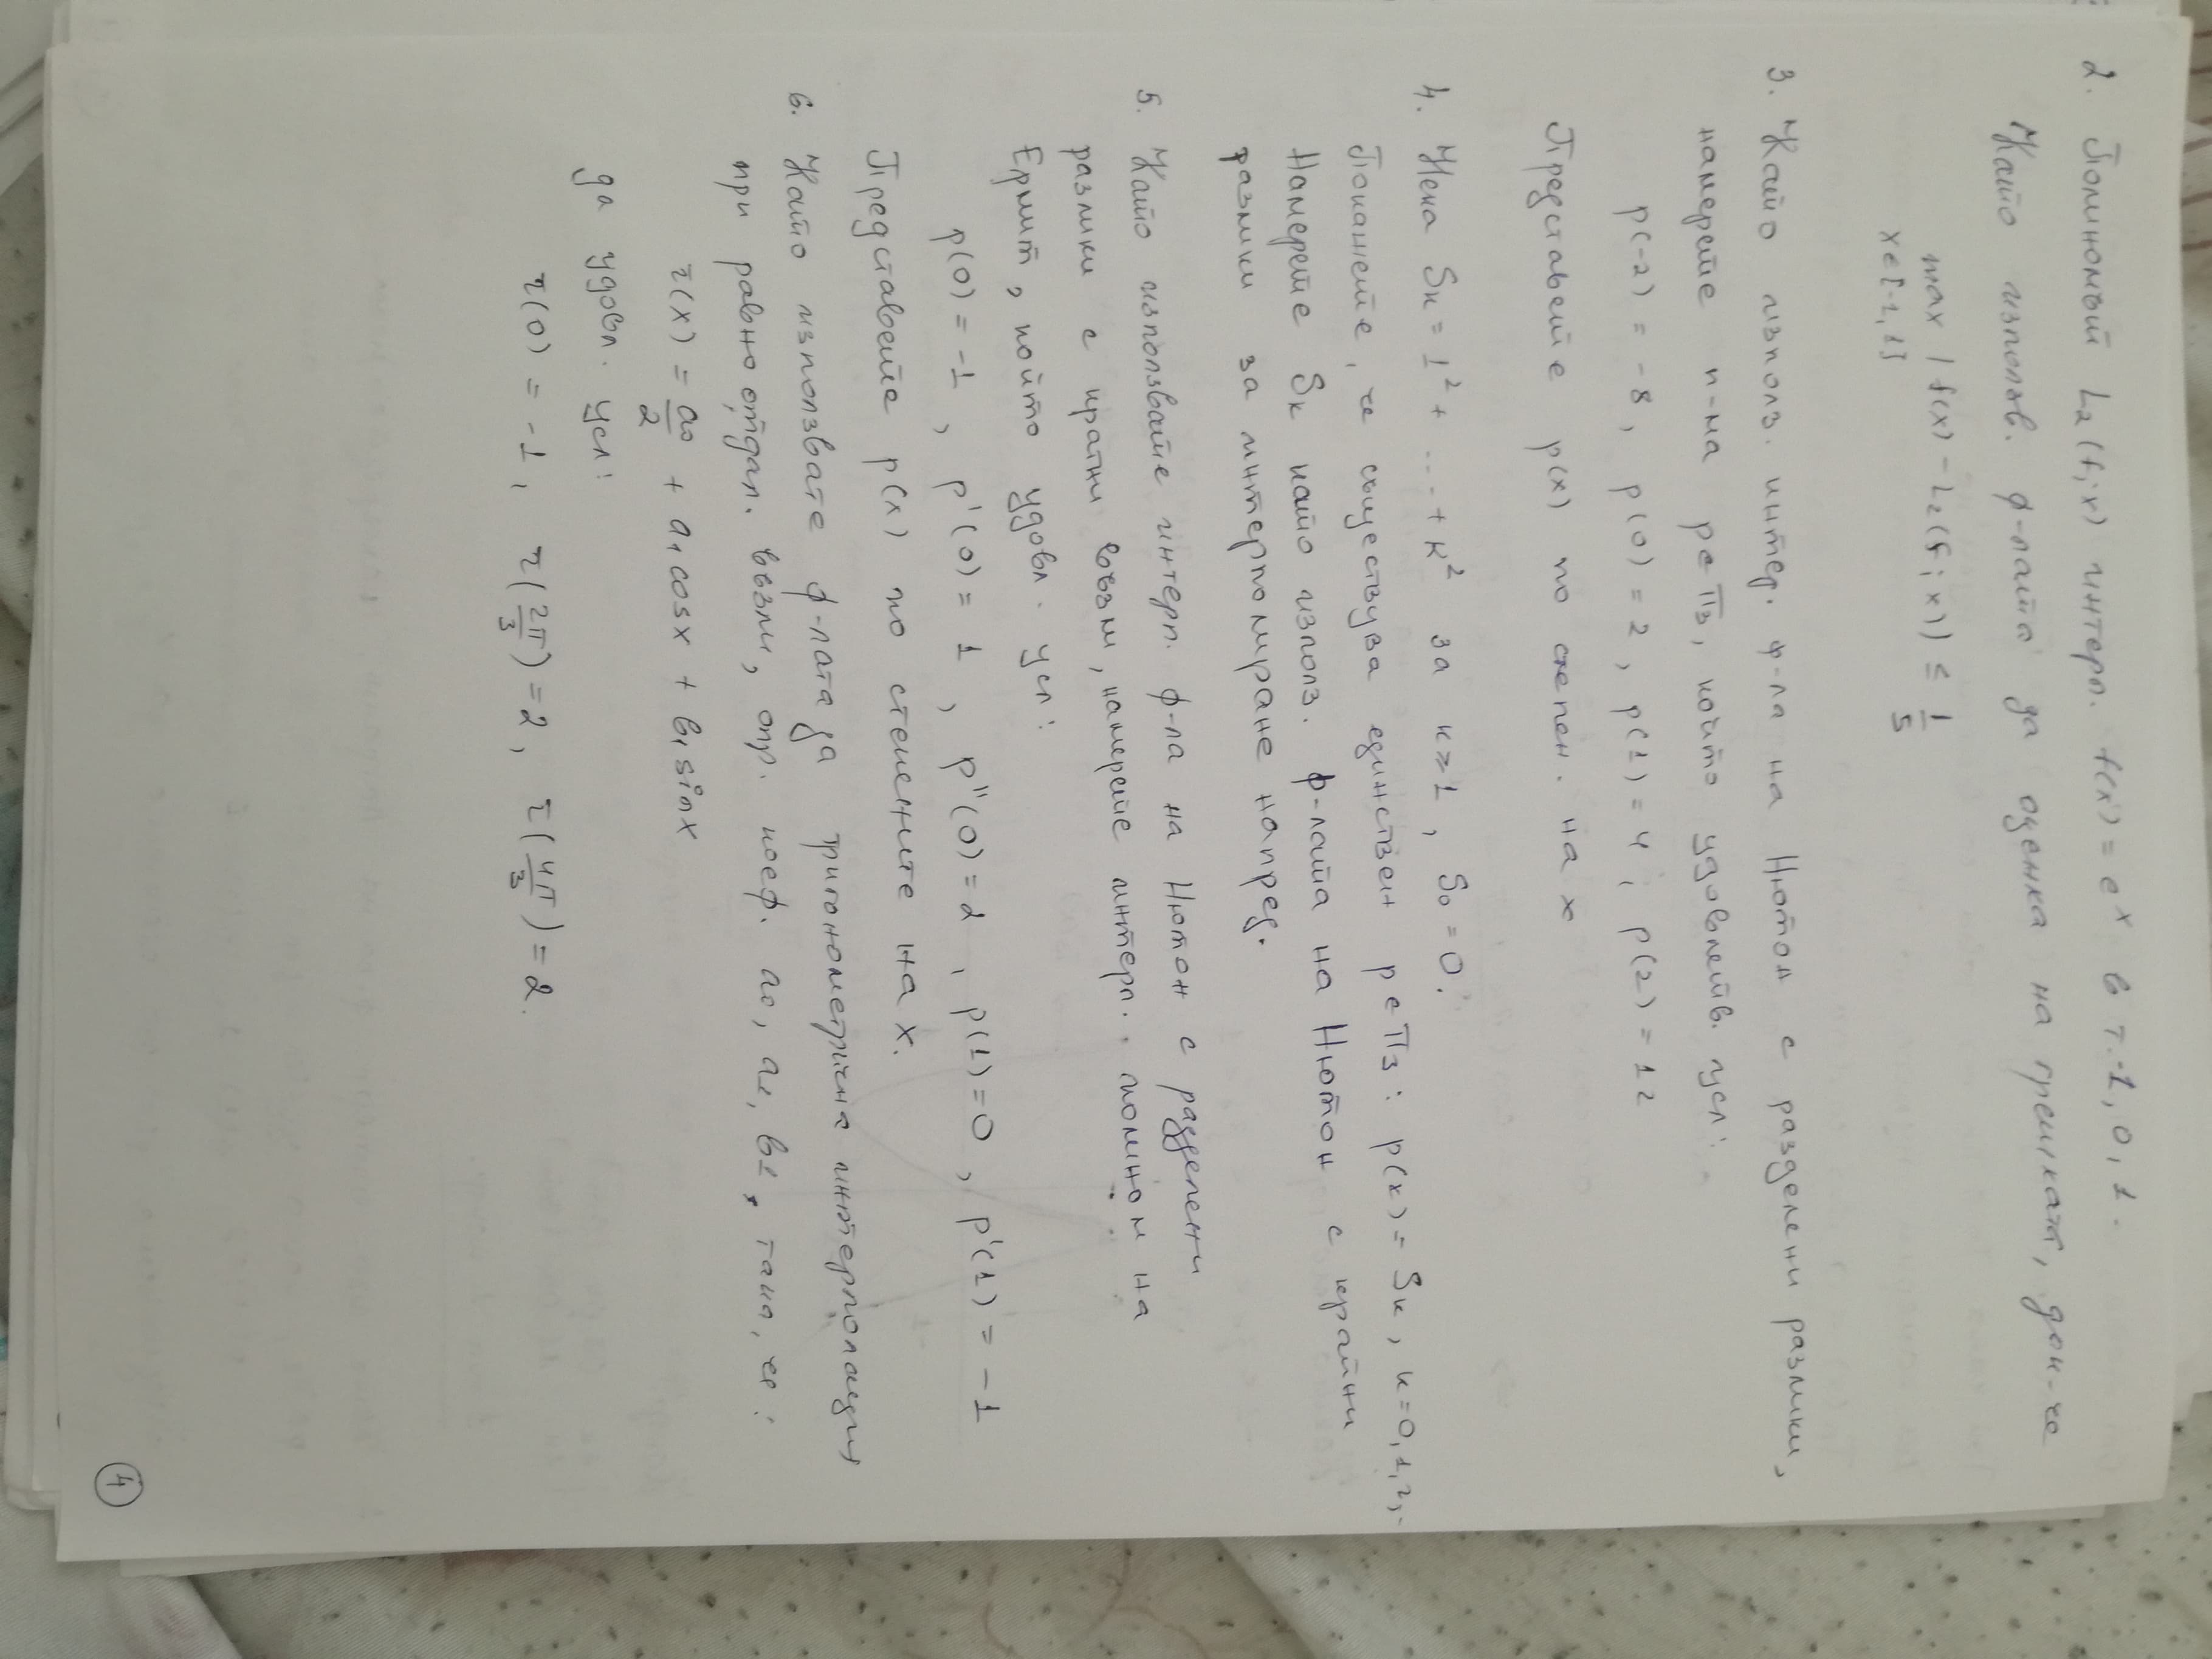 2. Полиномът L₂(f;x) интерп. f(x) = eˣ в т.-1, 0, 1.
Като използв. ф-лата за оценка на грешката, док-че
max |f(x) - L₂(f;x)| ≤ 1/5
x∈[-1,1]
3. Като използ. интер. ф-ла на Нютон с разделени разлики,
намерете п-ма p∈Π₃, който удовлетв. усл:
p(-2) = -8, p(0) = 2, p(1) = 4, p(2) = 12
Представете p(x) по степен. на x
4. Нека Sₖ = 1² + ... + k² за k≥1, S₀ = 0.
Покажете, че съществува единствен p∈Π₃: p(k) = Sₖ, k=0,1,2,..
Намерете Sₖ като използ. ф-лата на Нютон с крайни
разлики за интерполиране напред.
5. Като използвате интерп. ф-ла на Нютон с разделени
разлики с кратни възли, намерете интерп. полином на
Ермит, който удовл. усл:
p(0) = -1, p'(0) = 1, p''(0) = 2, p(1) = 0, p'(1) = -1
Представете p(x) по степените на x.
6. Като използвате ф-лата за тригонометрична интерполация
при равноотдал. възли, опр. коеф. a₀, a₁, b₁, така, че:
τ(x) = a₀/2 + a₁cosx + b₁sinx
да удовл. усл:
τ(0) = -1, τ(2π/3) = 2, τ(4π/3) = 2.
4